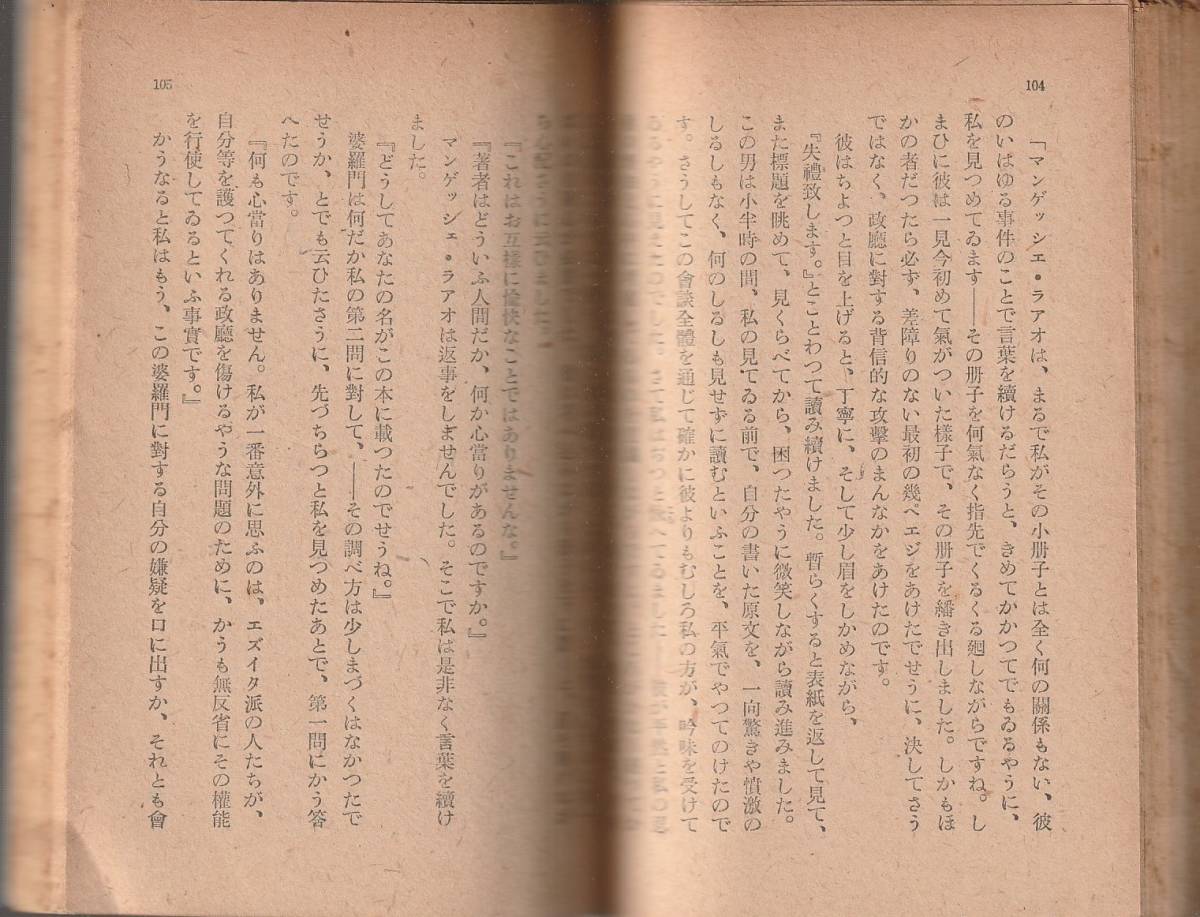 104
「マンゲッシェ・ラアオは、まるで私がその小册子とは全く何の關係もない、彼
のいはゆる事件のことで言葉を續けるだらうと、きめてかかつてでもゐるやうに、
私を見つめてゐます――その册子を何氣なく指先でくるくる廻しながらですね。し
まひに彼は一見今初めて氣がついた樣子で、その册子を繙き出しました。しかもほ
かの者だつたら必ず、差障りのない最初の幾ペエジをあけたでせうに、決してさう
ではなく、政廳に對する背信的な攻擊のまんなかをあけたのです。
彼はちよつと目を上げると、丁寧に、そして少し眉をしかめながら、
『失禮致します。』とことわつて讀み續けました。暫らくすると表紙を返して見て、
また標題を眺めて、見くらべてから、困つたやうに微笑しながら讀み進みました。
この男は小半時の間、私の見てゐる前で、自分の書いた原文を、一向驚きや憤激の
しるしもなく、何のしるしも見せずに讀むといふことを、平氣でやつてのけたので
す。さうしてこの會談全體を通じて確かに彼よりもむしろ私の方が、吟味を受けて
ゐるやうに見えたのでした。さて私はおつと
105
『これはお互樣に愉快なことではありませんな。』
『著者はどういふ人間だか、何か心當りがあるのですか。』
マンゲッシェ・ラアオは返事をしませんでした。そこで私は是非なく言葉を續け
ました。
『どうしてあなたの名がこの本に載つたのでせうね。』
婆羅門は何だか私の第二問に對して、――その調べ方は少しまづくはなかつたで
せうか、とでも云ひたさうに、先づちらつと私を見つめたあとで、第一問にかう答
へたのです。
『何も心當りはありません。私が一番意外に思ふのは、エズイタ派の人たちが、
自分等を護つてくれる政廳を傷けるやうな問題のために、かうも無反省にその權能
を行使してゐるといふ事實です。』
かうなると私はもう、この婆羅門に對する自分の嫌疑を口に出すか、それとも會